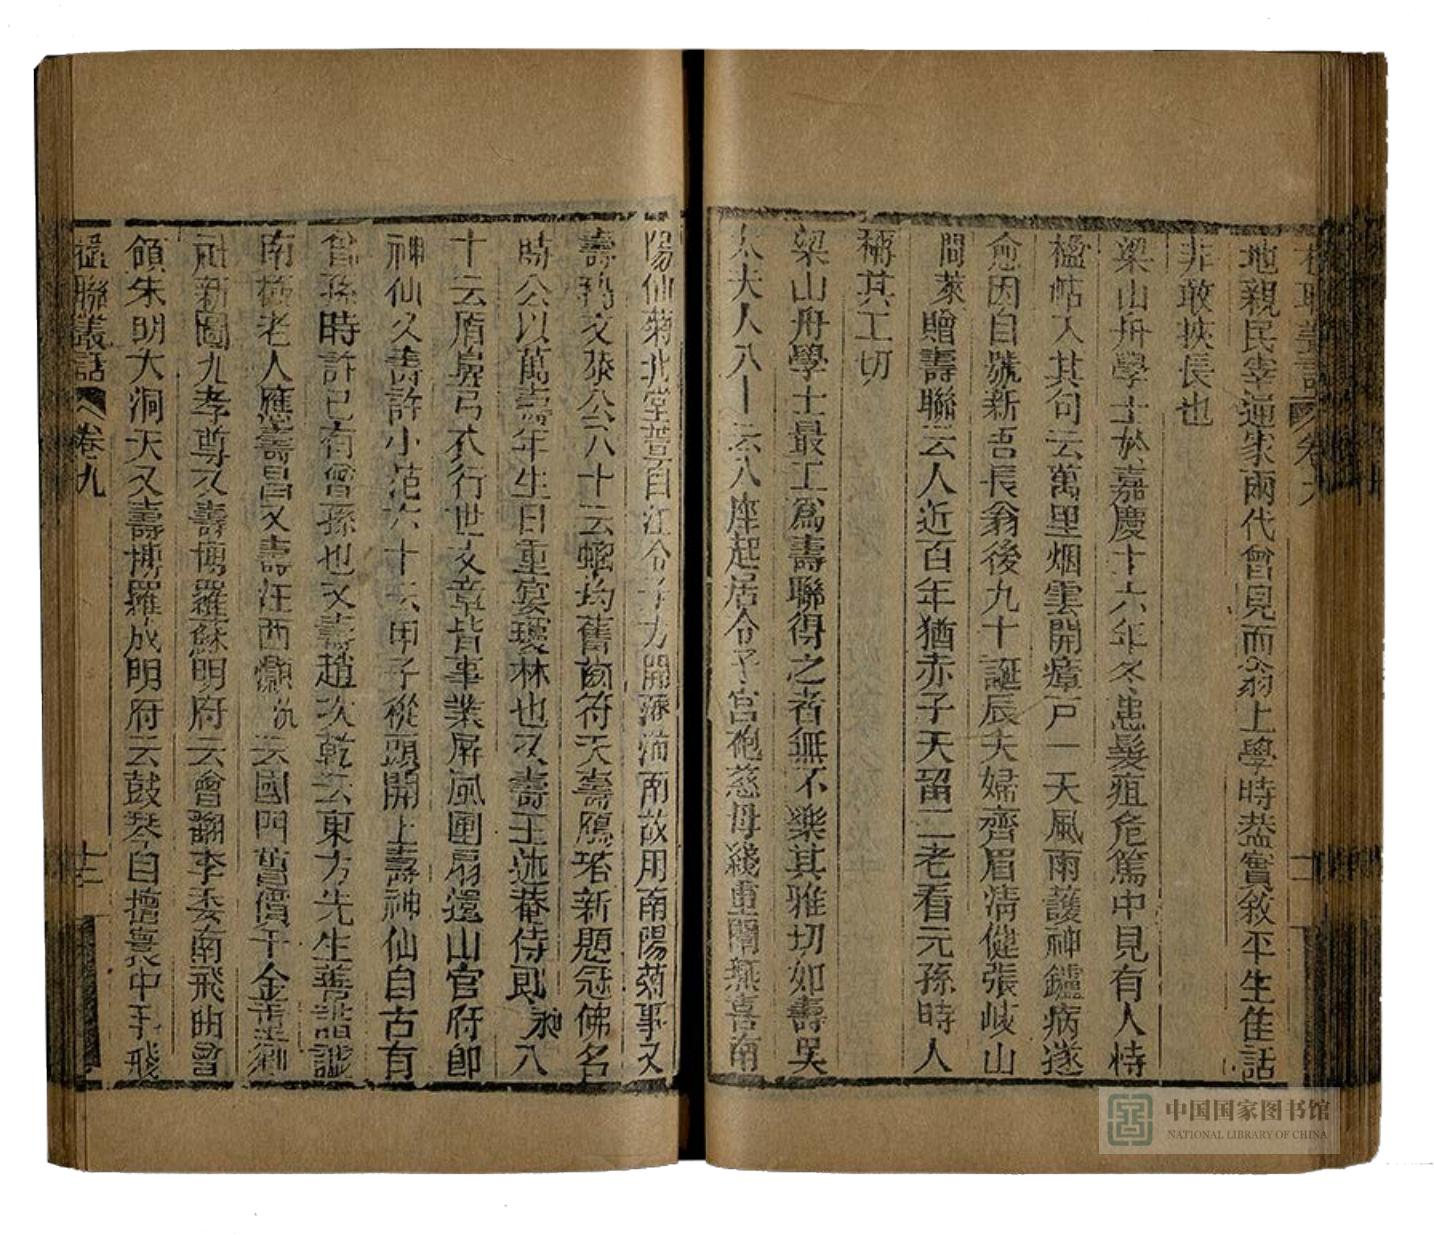 地親民宰通家兩代曾見而翁上學時蓋實敘平生佳話
非敢挾長也
梁山舟學士於嘉慶十六年冬患髮疽危篤中見有人持
楹帖入其句云萬里烟雲開瘴戸一天風雨護神鑪病遂
愈因自號新吾長翁後九十誕辰夫婦齊眉清健張岐山
問萊贈壽聯云人近百年猶赤子天留二老看元孫時人
稱其工切
梁山舟學士最工為壽聯得之者無不樂其雅切如壽吳
太夫人八十云八座起居令子宮袍慈母綫重闈燕喜南
陽仙菊北堂萱百江令子方開藩滇南故用南陽菊事又
壽 文 公六十云 舊 符天壽 新題冠佛名
時公以萬壽年生日重宴瓊林也又壽王述菴侍郎昶八
十云 弓衣行世文章皆事業屏風圍扇還山官府即
神仙又壽許小范六十云甲子從頭開上壽神仙自古有
曾孫時許已有曾孫也又壽趙次乾云東方先生善諧謔
南極老人應壽昌又壽汪西灝沆云國門舊價千金
新圖九老尊又壽博羅蘇明府云曾翻李委南飛曲曾
領朱明大洞天又壽博羅成明府云鼓琴自擅 中手飛
楹聯叢話 卷九 十二
中国国家图书馆
NATIONAL LIBRARY OF CHINA